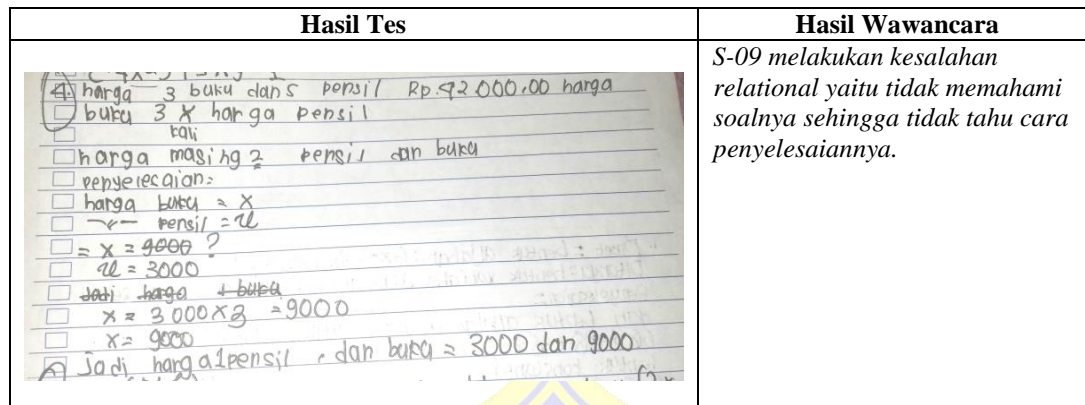 Hasil Tes
Hasil Wawancara
4. harga 3 buku dan 5 pensil Rp.42 000,00 harga
buku 3 X harga pensil
kali
harga masing2 pensil dan buku
penyelesaian:
harga buku = x
pensil = y
= x = 9000 ?
y = 3000
Jadi harga 1 buku
x = 3000 x 3 = 9000
x = 9000
Jadi harga 1 pensil , dan buku = 3000 dan 9000
S-09 melakukan kesalahan
relational yaitu tidak memahami
soalnya sehingga tidak tahu cara
penyelesaiannya.